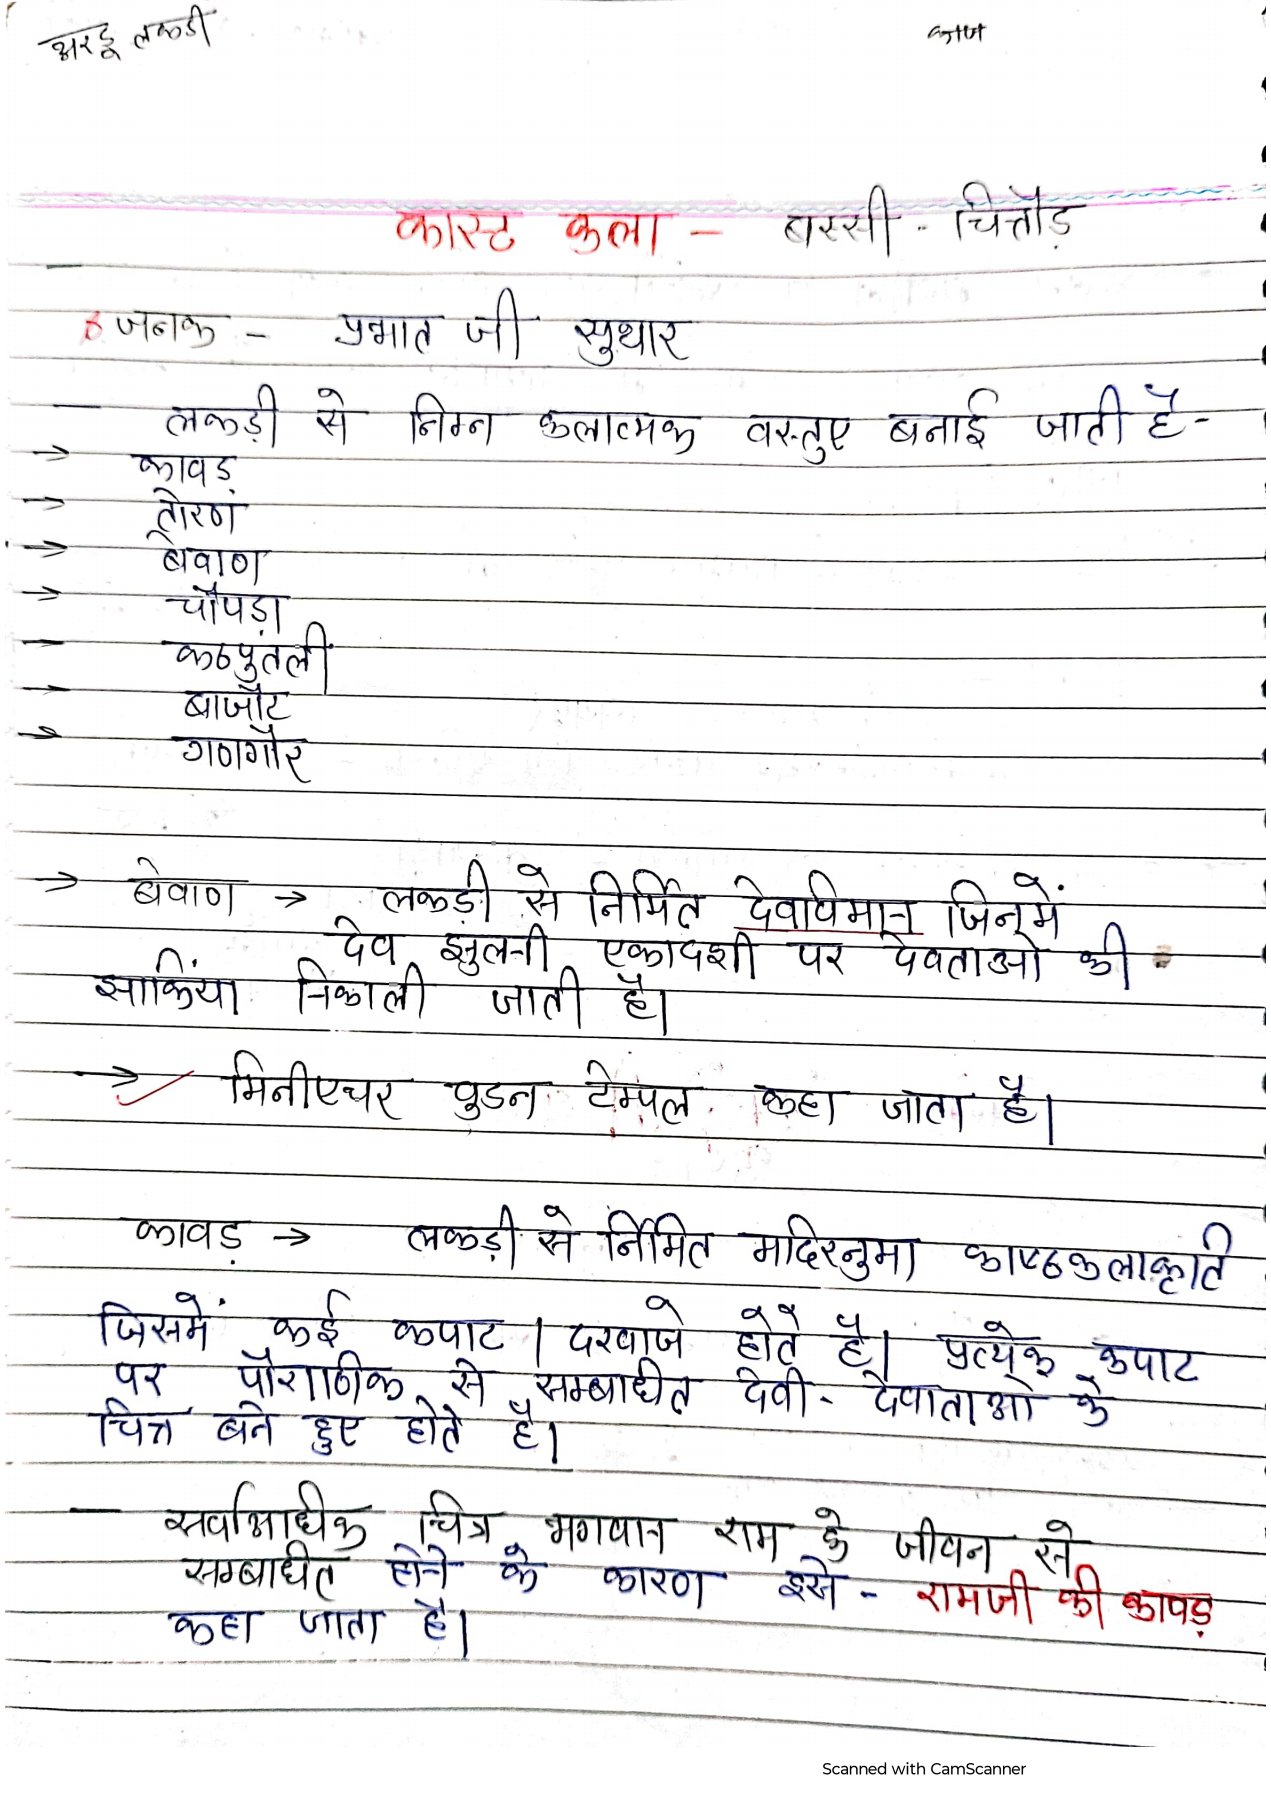 अरडू लकडी
काज
कास्ट कला - बस्सी - चित्तौड़
जनक - प्रभात जी सुथार
लकड़ी से निम्न कलात्मक वस्तुए बनाई जाती है -
→ कावड़
→ तोरण
→ बेवाण
→ चौपड़ा
→ कठपुतली
→ बाजौट
→ गणगौर
→ बेवाण → लकड़ी से निर्मित देवविमान जिनमें
देव झुलनी एकादशी पर देवताओ की
झाकिंया निकाली जाती है।
→ मिनीएचर वुडन टेम्पल कहा जाता है।
कावड़ → लकड़ी से निर्मित मदिरनुमा काष्ठकलाकृति
जिसमें कई कपाट / दरवाजे होते है। प्रत्येक कपाट
पर पौराणिक से सम्बाधीत देवी - देवाताओ के
चित्र बने हुए होते है।
- सर्वाआधीक चित्र भगवान राम के जीवन से
सम्बाधीत होने के कारण इसे - रामजी की कावड़
कहा जाता है।
Scanned with CamScanner